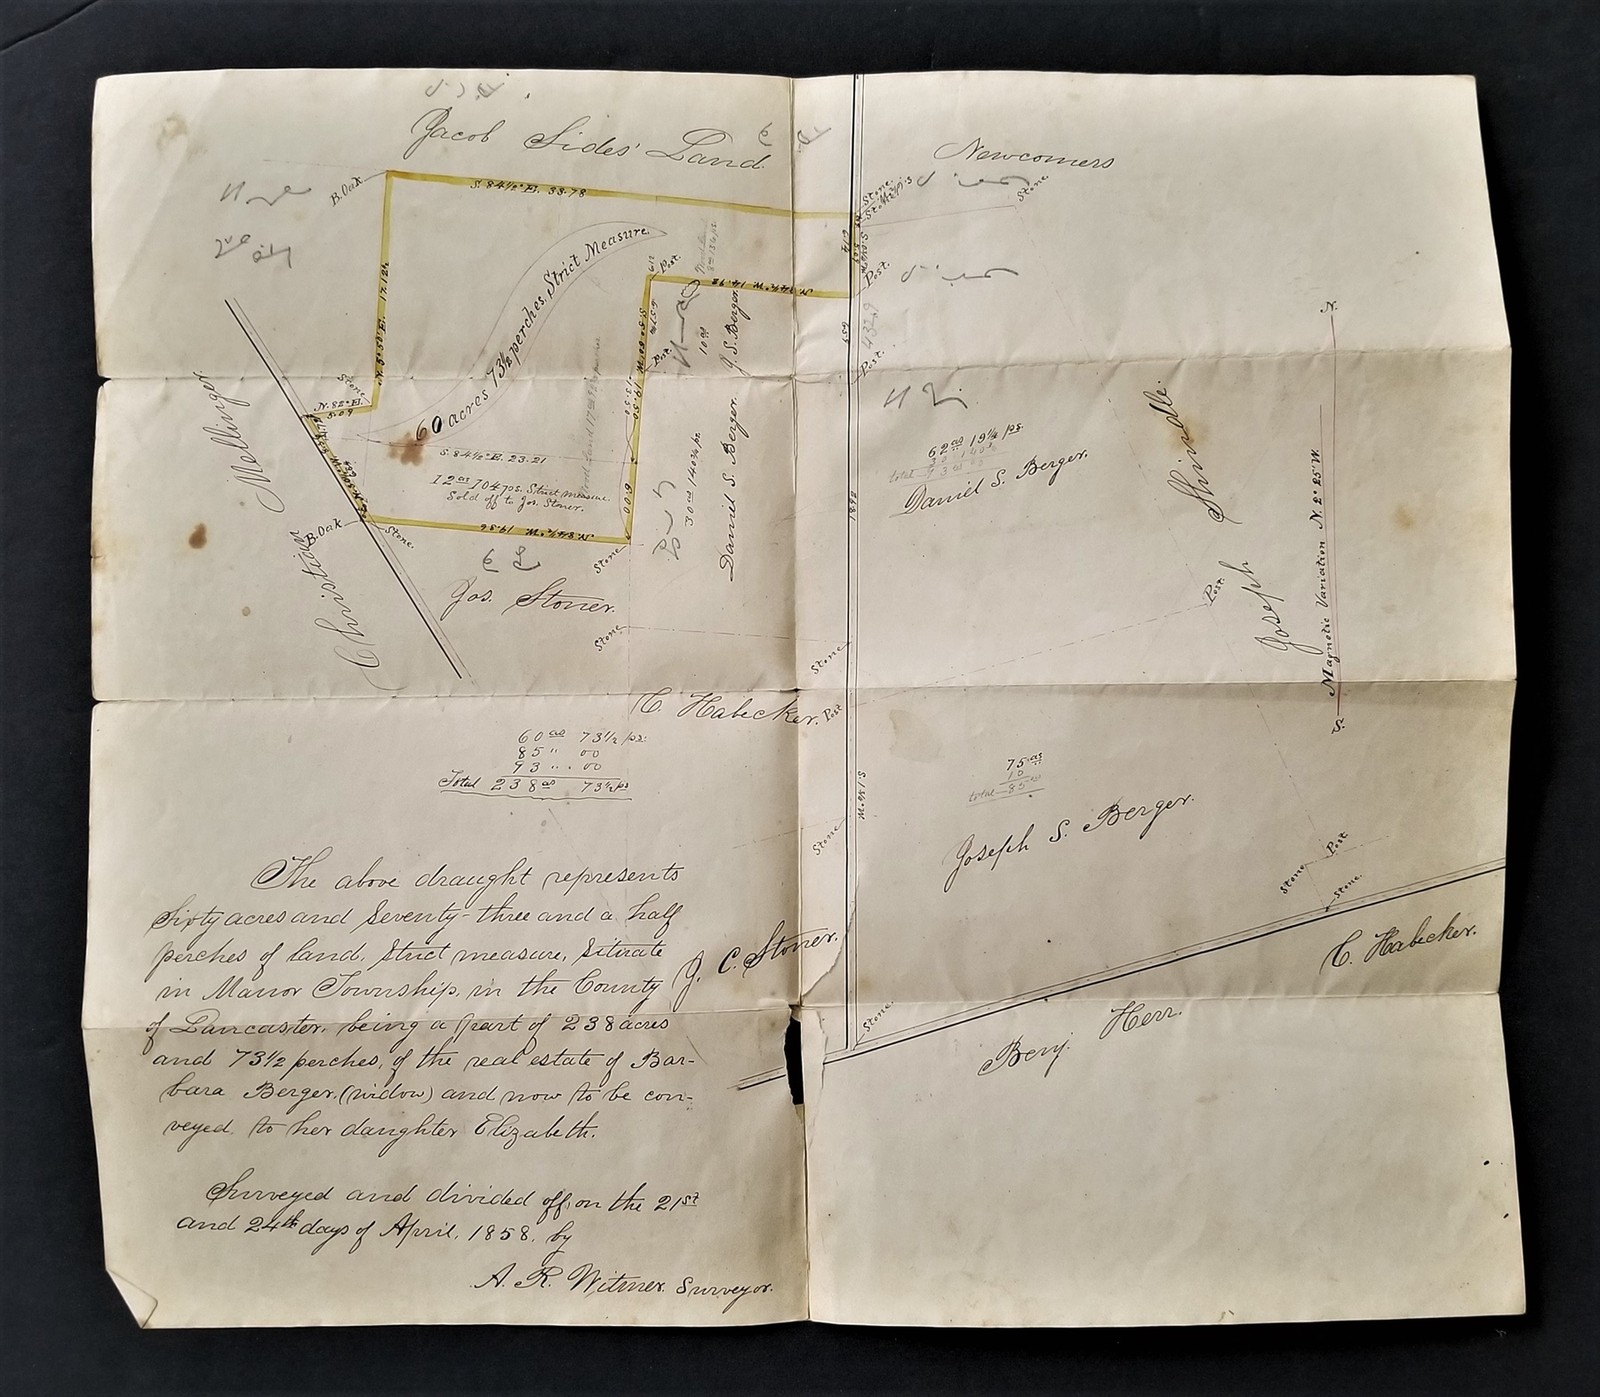 Jacob Sides' Land.
Newcomers
B. Oak
S. 84½° E. 53.78
Stone.
Stone.
60 acres 73½ perches, Strict Measure.
Post.
Post.
N. 5° 50' E. 17.12½
J. S. Berger.
10 as
Post.
Post.
Stone
N. 82° E.
5.09
Christian Mellinger.
S. 84½° E. 23.21
12 as 104 ps. Strict measure.
Sold off to Jos. Stoner.
30 as 140¾ ps
Daniel S. Berger.
62 as 19¼ ps.
total
Daniel S. Berger.
Joseph Shindle
N.
Magnetic Variation N. 2° 25' W.
S.
B. Oak
Stone.
N. 84½° W. 19.36
6.05
Stone
Jos. Stoner.
Stone
Stone
Post.
C. Habecker.
Post
60 as 73½ ps.
85 " 00
93 " " 00
Total 238 as 73½ ps
75 as
10
total 85 as
Joseph S. Berger.
S. 1¾° W.
Stone
Stone
Post
Stone.
J. C. Stoner.
C. Habecker.
Stone.
Benj. Herr.
The above draught represents
Sixty acres and Seventy-three and a half
perches of land, Strict measure, Situate
in Manor Township, in the County
of Lancaster, being a part of 238 acres
and 73½ perches, of the real estate of Bar-
bara Berger, (widow) and now to be con-
veyed, to her daughter Elizabeth.
Surveyed and divided off, on the 21st
and 24th days of April, 1858, by
A. R. Witmer, Surveyor.